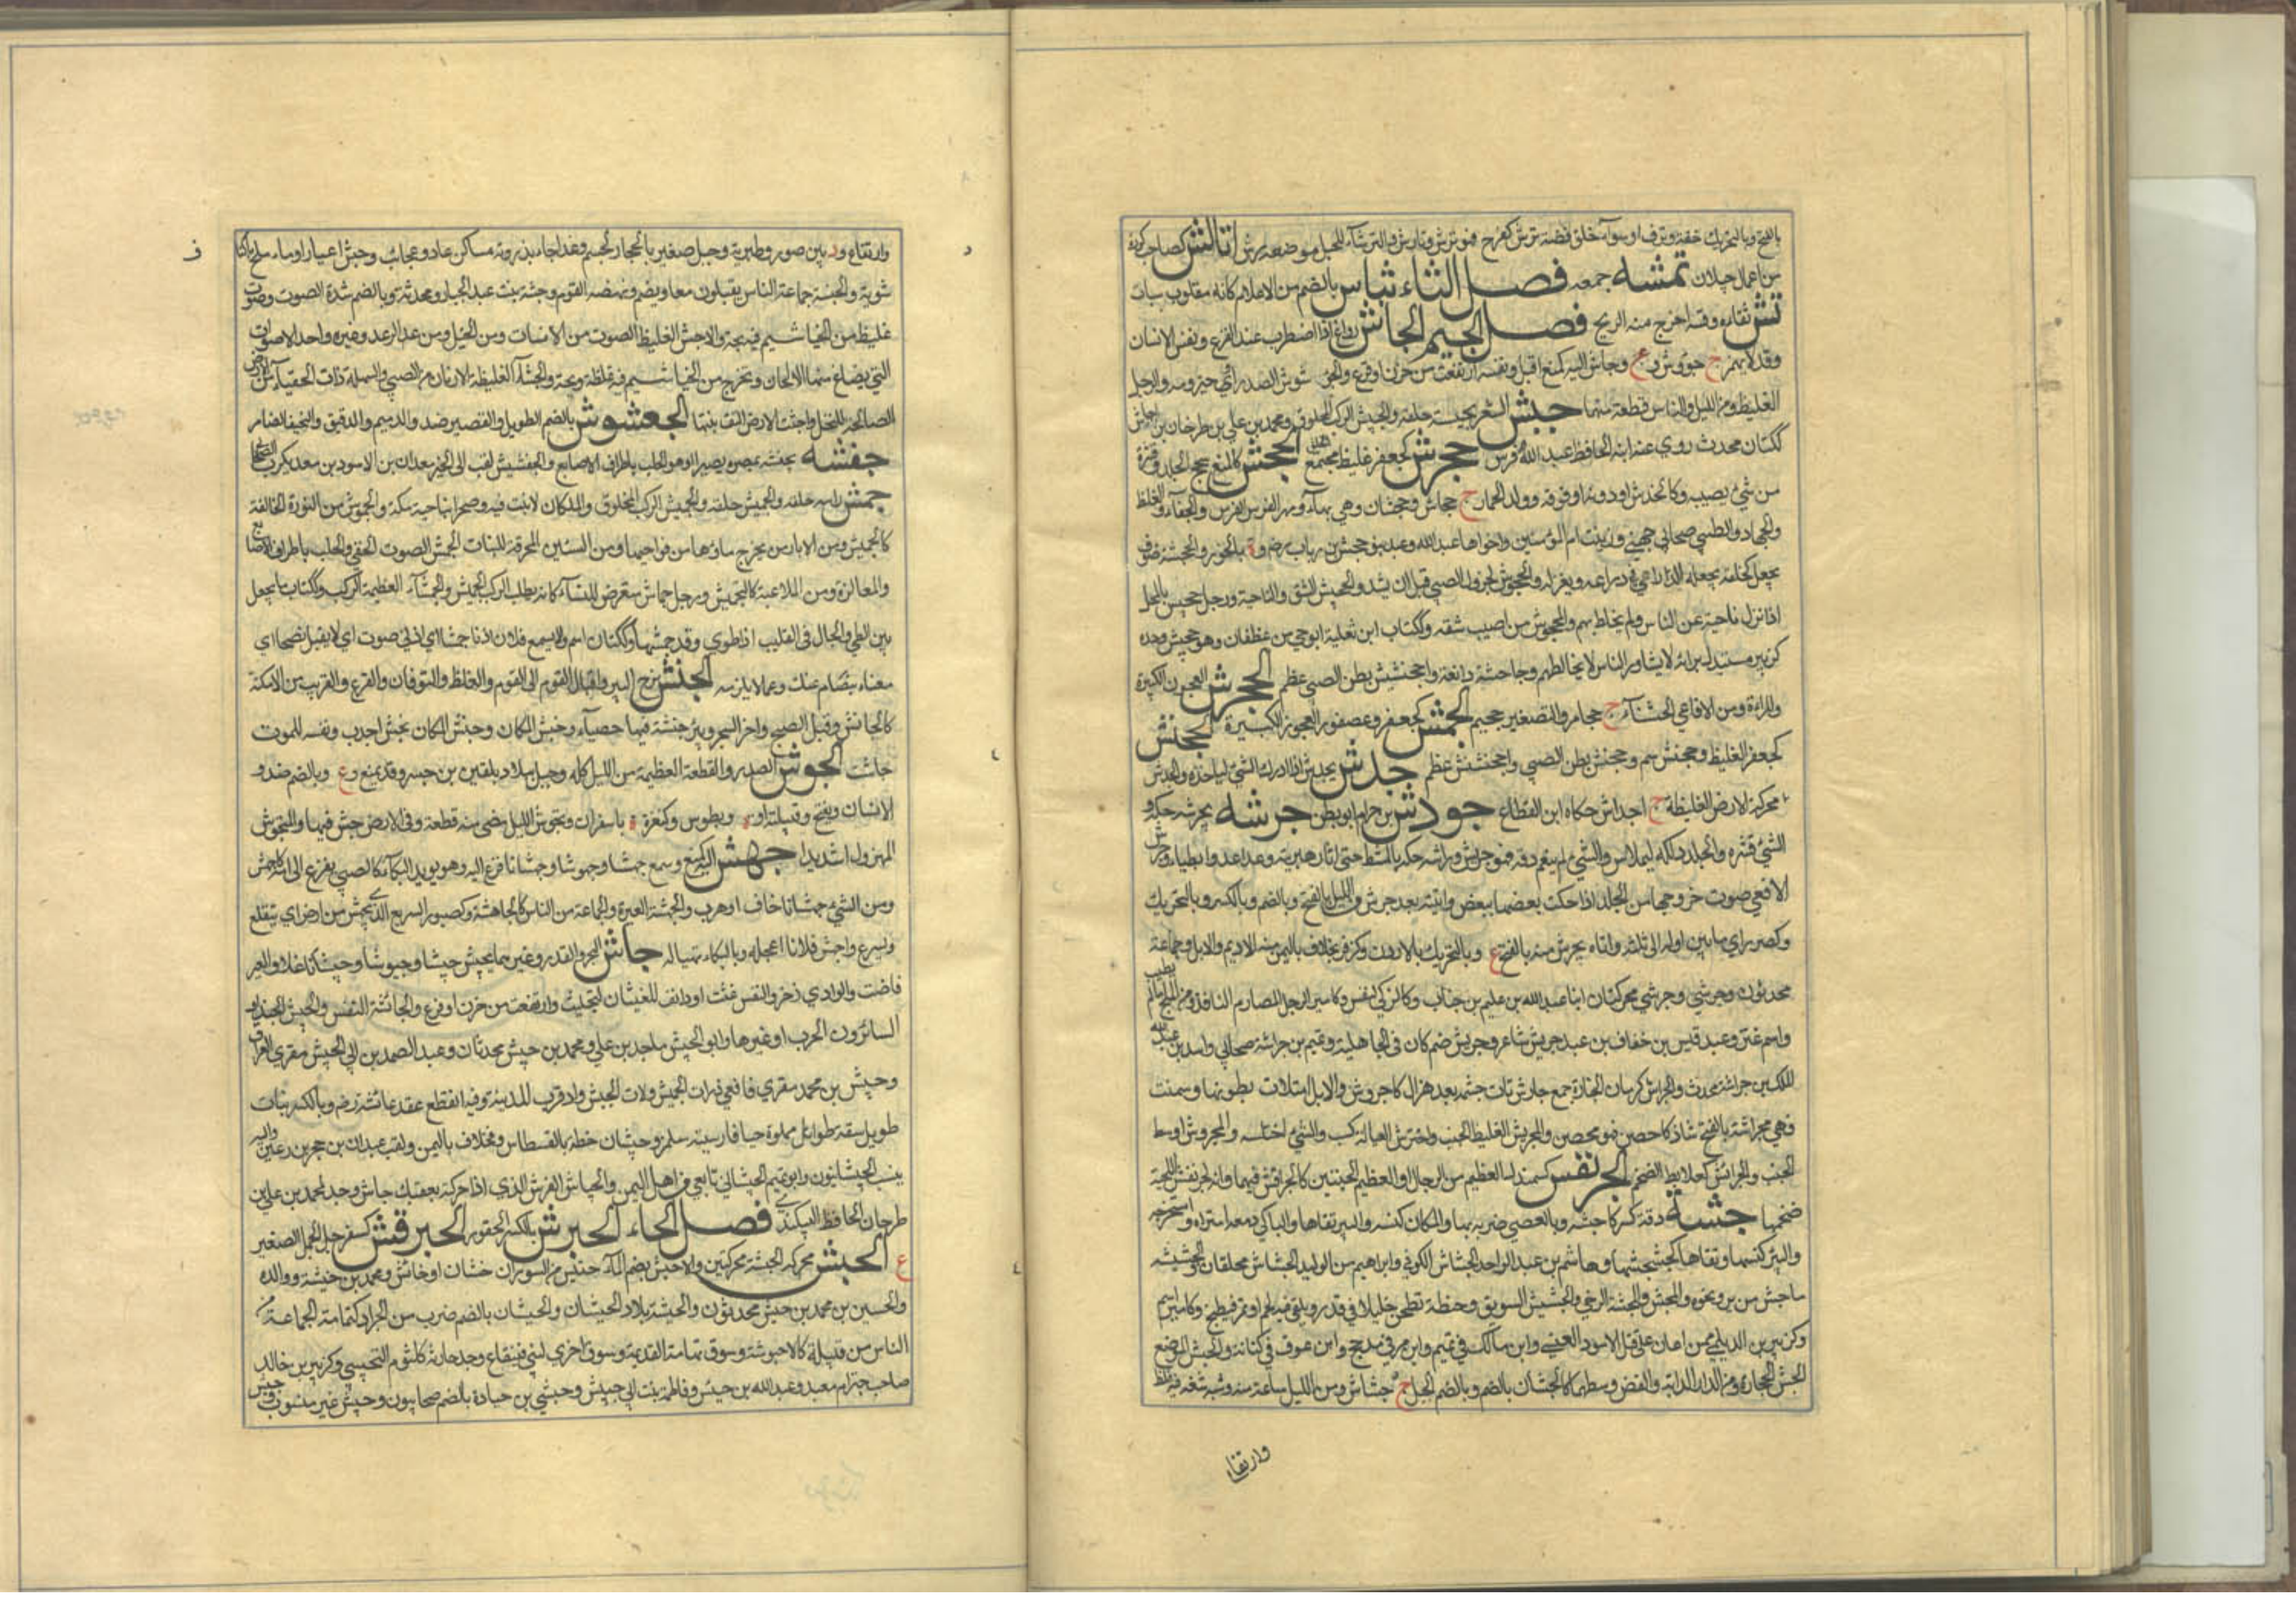 بالفتح وبالتحريك خفة ونزق او سوء خلق وضنة ترش كفرح فهو ترش وتارش والترشاء للحبل موضعه رش ا تالش كصاحب كورة
من اعمال جيلان تمشه جمعه فصل الثاء ثباس بالضم من الاعلام كانه مقلوب سباث
تش سقاءه وفشه اخرج منه الريح فصل الجيم الجاش رواع اذا اضطرب عند الفزع ونفس الانسان
وقد لا يهمز ج جووش و ع وجاش اليه كمنع اقبل ونفسه ارتفعت من حزن او فزع والجؤشوش الصدر اي حيزومه والرجل
الغليظ ومن الليل والناس قطعة منها جبش الشعر يجبشه حلقه والجبيش الركب المحلوق ومحمد بن علي بن طرخان بن جباش
ككتان محدث روى عنه ابنه الحافظ عبد الله فرس جحرش كجعفر غليظ مجتمع الجحش كالمنع سحج الجلد وقشرة
من شيء يصيبه وكالخدش او دونه او فوقه وولد الحمار ج جحاش وجحشان وهي بهاء ومهر الفرس الفرس والجفاء والغلظ
والجهاد والظبي صحابي جهني وزينب ام المؤمنين واخواها عبد الله وعبد بنو جحش بن رياب رضي و ة بالخور والجحشة صوف
يجعل كحلقة يجعله الراعي في ذراعه ويغزله والجحوش كجرول الصبي قبل ان يشد والجحيش الشق والناحية ورجل جحيش المحل
اذا نزل ناحية عن الناس ولم يختلط بهم والمجحوش من اصيب شقه وككتاب ابن ثعلبة ابو حي من غطفان وهو جحيش وحده
كزبير مستبد برائه لا يشاور الناس لا يخالطهم وجاحشه دافعه واجحنشيش بطن الصبي عظم الجحمرش العجوز الكبيرة
والمراة ومن الافاعي الخشناء ج جحامر والتصغير جحيمر الجحمش كجعفر وعصفور العجوز الكبيرة الجحنش
كجعفر الغليظ وجحنش اسم وجحنش بطن الصبي واجحنشش عظم جدش يجدش اذا ادار الشيء لياخذه والجدش
محركة الارض الغليظة ج اجداش حكاه ابن القطاع جودش بن حرام ابو بطن جرشه يجرشه حكه و
الشيء قشره والجلد دلكه ليملاس والشيء لم ينعم دقه فهو جريش وراسه حكه بالمشط حتى اثار هبريته وعدا عدوا بطيا وجرش
الافعى صوت خروجها من الجلد اذا حكت بعضها ببعض واتيته بعد جرش من الليل بالفتح وبالضم وبالكسر وبالتحريك
وكصرد اي ما بين اوله الى ثلثه واتاه بجرش منه بالفتح ع وبالتحريك د بالاردن وكزفر مخلاف باليمن منه الاديم والابل وجماعة
محدثون وجرشي وجرشي محركتان ابنا عبد الله بن عليم بن جناب وكالزمكى النفس وكامير الرجل الصارم النافذ ومن الملح ما لم يطيب
واسم عنز وعبد قيس بن خفاف بن عبد جريش شاعر وجريش صنم كان في الجاهلية وتميم بن جراشة صحابي واسد بن عبد
الملك بن جراشة محدث والجراش كرمان الجناة جمع جارش ثاب جسمه بعد هزال كاجروش والابل امتلات بطونها وسمنت
فهي مجراشة بالفتح شاذ كاحصن فهو محصن والمجرئش الغليظ الجنب واجترش لعياله كسب والشيء اختلسه والمجروش اوسط
الجنب والجرائش كعلابط الضخم الجرنفش كسمندل العظيم من الرجال او العظيم الجنبين كالجرافش فيهما وانه لجرنفش اللحية
ضخمها جشه دقه كسره كاجشه وبالعصي ضربه بها والمكان كنسه والبير نقاها والباكي دمعه امتراه واستخرجه
والبئر كنسها ونقاها كجشجشها وهاشم بن عبد الواحد الجشاش الكوفي وابراهيم بن الوليد الجشاش محدثان والجشيشة
ما جش من بر ونحوه والمجش والمجشة الرحى والجشيش السويق وحنطة تطحن جليلا في قدر ويلقى فيه لحم او تمر فيطبخ وكامير اسم
وكزبير بن الديلمي ممن اعان على قتل الاسود العنسي وابن مالك في تميم وابن مر في مذحج وابن عوف في كنانة والجش الموضع
الخشن الحجارة ومن الدار الدابة والقفر وسطها كالجشان بالضم وبالضم الجبل ج جشاش ومن الليل ساعة منه وشبه شفة فيه غلظ
وارتفاء
وارتفاع ود بين صور وطبرية وجبل صغير بالحجاز لجشم وغدا جاء بذروته مساكن عاد وعجائب وجش اعيار اوماء ملح باكناف
شوبة والجشة جماعة الناس يقبلون معا ويضم ونهضة القوم وجشة بنت عبد الجبار محدثة وبالضم شدة الصوت وصوت
غليظ من الخياشيم فيه بحة والاجش الغليظ الصوت من الانسان ومن الخيل ومن عد الرعد وغيره واحد الاصوات
التي يصاغ منها الالحان ويخرج من الخياشيم فيه غلظة وبحة والجشاء الغليظة الارنان من القسي والسهلة ذات الحصباء من الارض
الصالحة للنخل واجشت الارض التف نبتها الجعشوش بالضم الطويل والقصير ضد والدميم والدقيق والنحيف الضامر
جفشه يجفشه عصره يسيرا وهو الحلب باطراف الاصابع والجفشيش لقب ابي الخير معدان بن الاسود بن معدي كرب الصحابي
جمش راسه حلقه والجميش حلقه والجميش الركب المحلوق والمكان لا نبت فيه وصحراء بناحية مكة والجموش من النورة الحالقة
كالجميش ومن الابار من يخرج ماؤها من نواحيها ومن السنين المحرقة للنبات الجمش الصوت الخفي والحلب باطراف الاصابع
والمغازلة ومن الملاعبة كالتجميش ورجل جماش متعرض للنساء كانه يطلب الركب الجميش والجمشاء العظيمة الركب وككتاب ما يجعل
بين الطي والجال في القليب اذا طوي وقد جمشها وككتان اسم ولا يسمع فلان اذنا جمشا اي ادنى صوت اي لا يقبل نصحا اي
معناه يتصام عنك وعما لا يلزمه الجنش نزح البير واقبال القوم الى القوم والغلظ والتوقان والفزع والقريب من الامكنة
كالجانش وقبل الصبح واخر السحر وبئر جنشة فيها حصباء وجنش المكان وجنش المكان يجنش اجدب ونفسه للموت
جاشت الجوش الصدر والقطعة العظيمة من الليل كله وجبل ببلاد بلقين بن جسر وقد يمنع و ع وبالضم ضد و
الانسان ويفتح وقبيلة او ة وبطوس وكنفزة ة باسفراين وتجوش الليل مضى منه قطعة وفي الارض جش فيها والتجوش
المهزول شديدا جهش اليه كمنع وسمع جهشا وجهوشا وجهشانا فزع اليه وهو يريد البكاء كالصبي يفزع الى امه كاجهش
ومن الشيء جهشانا خاف او هرب والجهشة العبرة والجماعة من الناس كالجاهشة وكصبور السريع الذي يجهش من ارض اي يتقلع
ويسرع واجهش فلانا اعجله وبالبكاء تهيا له جاش البحر والقدر وغيرهما يجيش جيشا وجيوشا وجيشانا غلا والعين
فاضت والوادي زخر والنفس غثت او دارت للغثيان كتجيشت وارتفعت من حزن او فزع والجائشة النفس والجيش الجند او
السائرون لحرب او غيرها وابو الجيش ماجد بن علي ومحمد بن جيش محدثان وعبد الصمد بن ابي الجيش مقري العراق
وجيش بن محمد مقري نافعي وذات الجيش ولات الجيش واد قرب المدينة وفيه انقطع عقد عائشة رضي وبالكسر نبات
طويل سنفة طوال مملوة حبا فارسيته شلمز وجيشان خطة بالفسطاس ومخلاف باليمن ولقب عبدان بن حجر بن ذي رعين واليه
ينسب الجيشانيون وابو تميم الجيشاني تابعي من اهل اليمن والجياش الفرس الذي اذا حركته بعقبك جاش وجد لمحمد بن علي بن
طرخان الحافظ البيكندي فصل الحاء الحبرش بالكسر الحقود الحبرقش كسفرجل الجمل الصغير
ع الحبش محركة الحبشة محركتين والاحبش بضم الباء جنس من السودان ج حبشان او حابش ومحمد بن حبشة ووالده
والحسين بن محمد بن حبش محدثون والحبشة بلاد الحبشان والحبشان بالضم ضرب من الجراد كثمامة الجماعة من
الناس من قبيلة كالاحبوشة وسوق تهامة القديمة وسوق اخرى لبني قينقاع وجد حارثة كلثوم التجيبي وكزبير بن خالد
صاحب خبر ام معبد وعبد الله بن حبش وفاطمة بنت ابي حبيش وحبشي بن جنادة بالضم صحابيون وحبيش غير منسوب وحبيش
ف